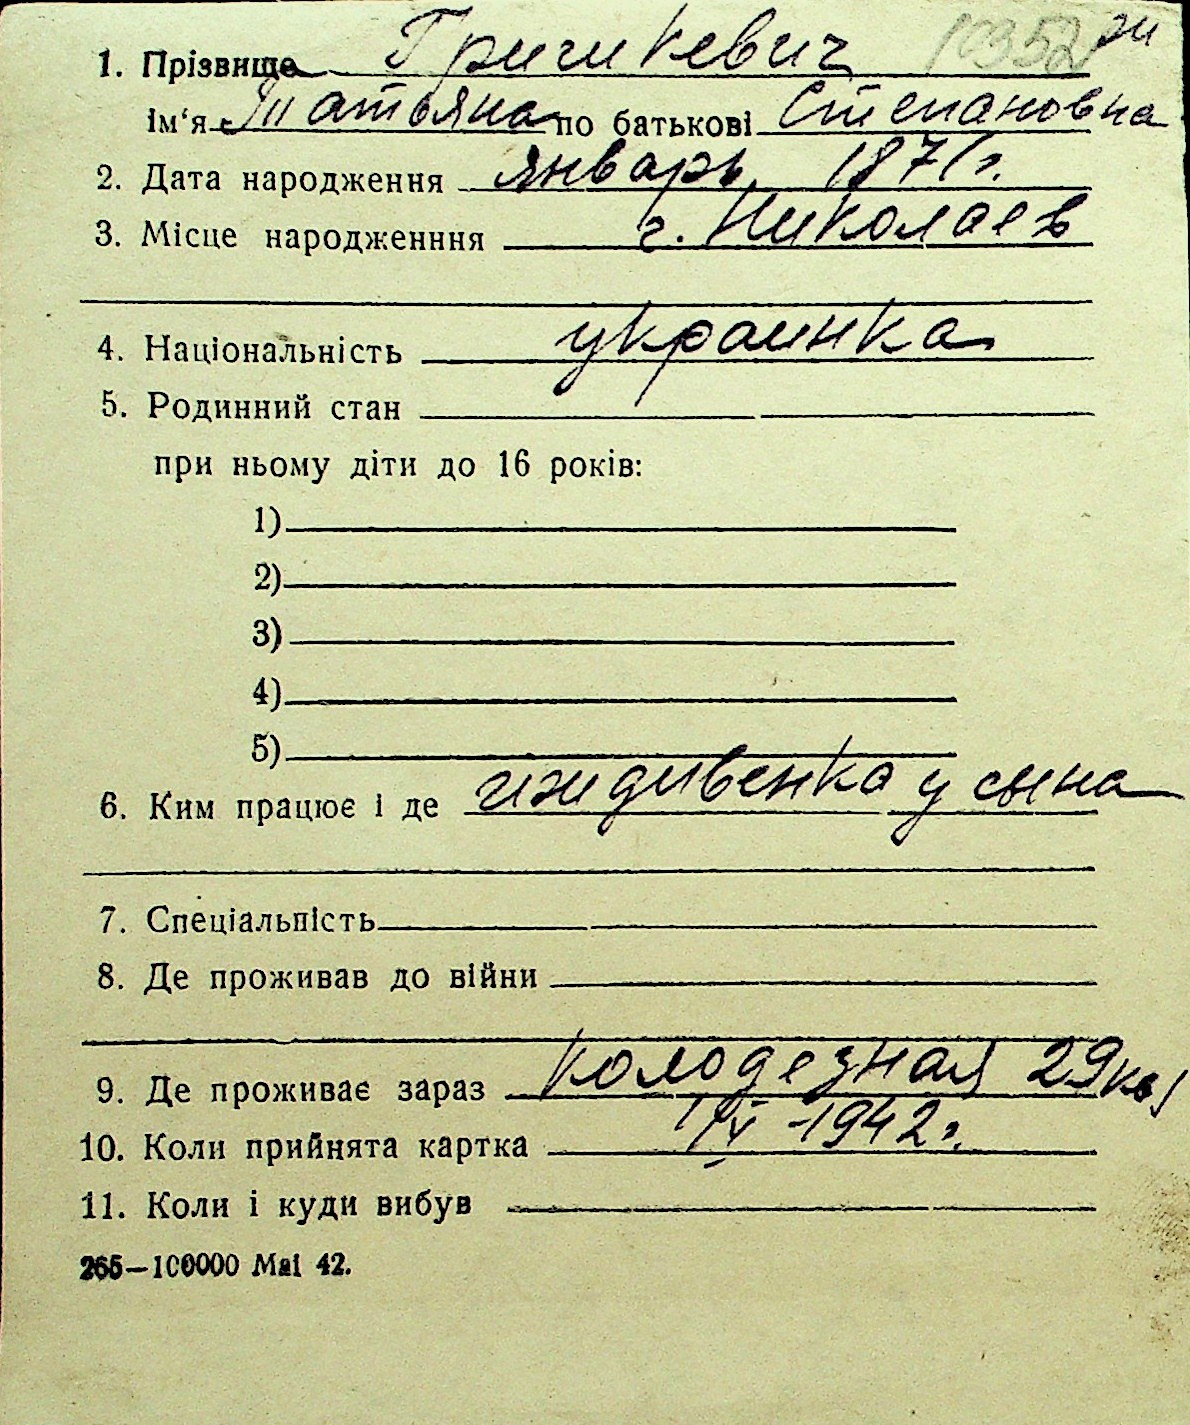 10352 ж
1. Прізвище Григикевич
ім'я Татьяна по батькові Степановна
2. Дата народження январь 1871г.
3. Місце народженння г. Николаев
4. Національність украинка
5. Родинний стан
при ньому діти до 16 років:
1)
2)
3)
4)
5)
6. Ким працює і де иждивенка у сына
7. Спеціальність
8. Де проживав до війни
9. Де проживає зараз Колодезная 29 кв 1
10. Коли прийнята картка 1942г.
11. Коли і куди вибув
265—100000 Маі 42.